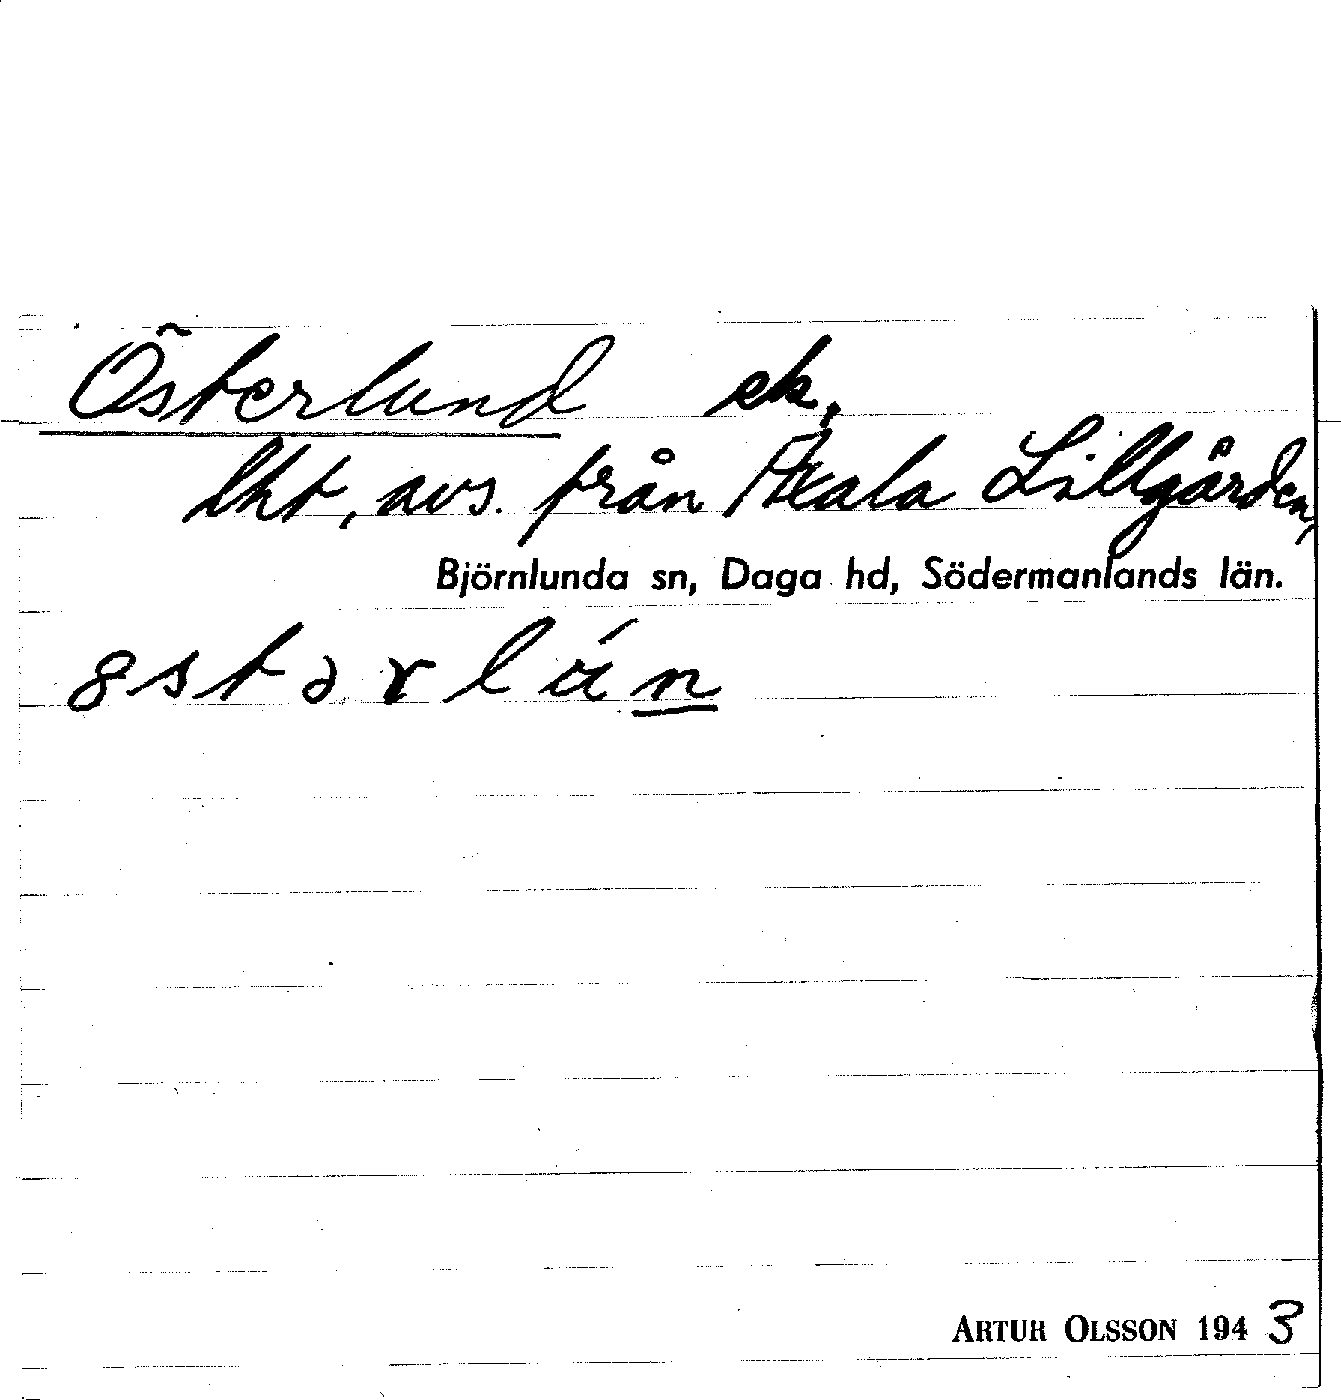 Österlund ek.
lht, avs. från Åkala Lillgården,
Björnlunda sn, Daga hd, Södermanlands län.
ARTUR OLSSON 1943